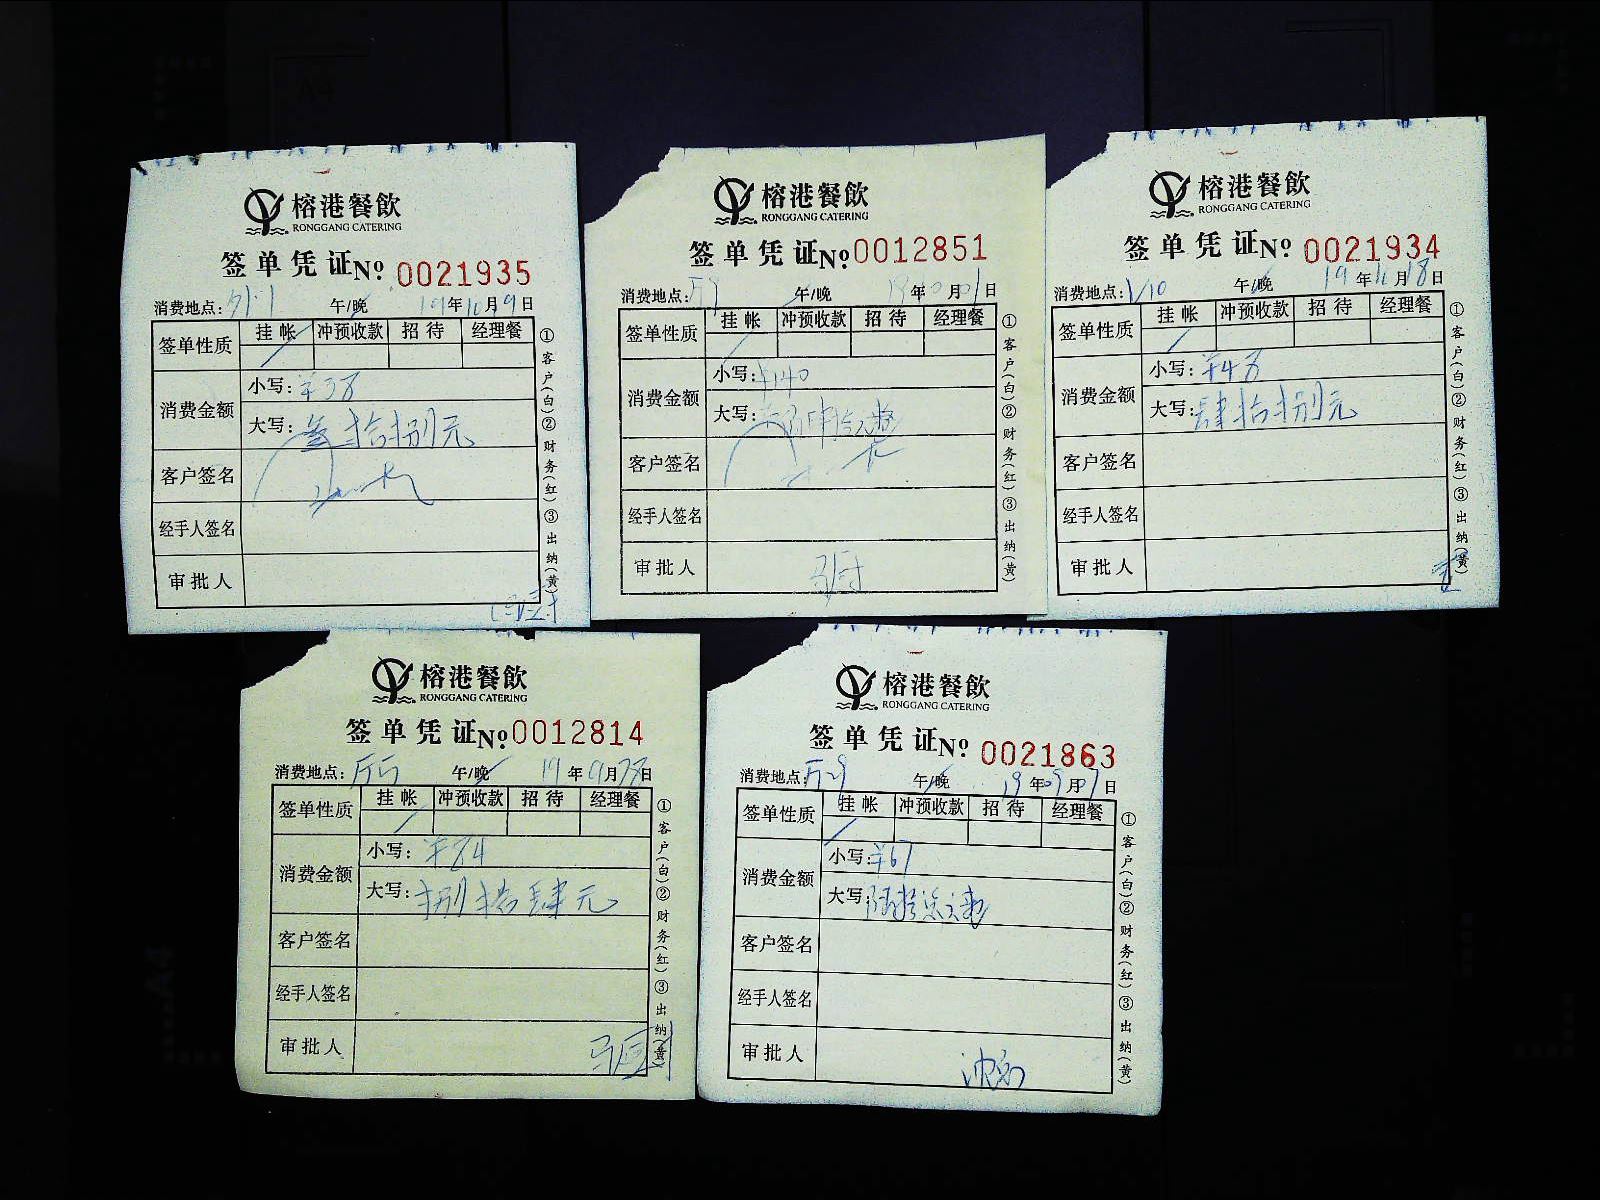 榕港餐飲
RONGGANG CATERING
签单凭证 №0021935
消费地点: 午/晚 19年10月9日
签单性质 挂帐 冲预收款 招待 经理餐
消费金额 小写:¥38
大写:叁拾捌元
客户签名
经手人签名
审批人
①客户(白)②财务(红)③出纳(黄)
榕港餐飲
RONGGANG CATERING
签单凭证 №0012851
消费地点: 午/晚 年 月 日
签单性质 挂帐 冲预收款 招待 经理餐
消费金额 小写:¥140
大写:壹佰肆拾元整
客户签名
经手人签名
审批人
①客户(白)②财务(红)③出纳(黄)
榕港餐飲
RONGGANG CATERING
签单凭证 №0021934
消费地点: 午/晚 19年 月18日
签单性质 挂帐 冲预收款 招待 经理餐
消费金额 小写:¥48
大写:肆拾捌元
客户签名
经手人签名
审批人
①客户(白)②财务(红)③出纳(黄)
榕港餐飲
RONGGANG CATERING
签单凭证 №0012814
消费地点: 午/晚 19年9月28日
签单性质 挂帐 冲预收款 招待 经理餐
消费金额 小写:¥84
大写:捌拾肆元
客户签名
经手人签名
审批人
①客户(白)②财务(红)③出纳(黄)
榕港餐飲
RONGGANG CATERING
签单凭证 №0021863
消费地点: 午/晚 19年09月07日
签单性质 挂帐 冲预收款 招待 经理餐
消费金额 小写:¥67
大写:陆拾柒元整
客户签名
经手人签名
审批人
①客户(白)②财务(红)③出纳(黄)